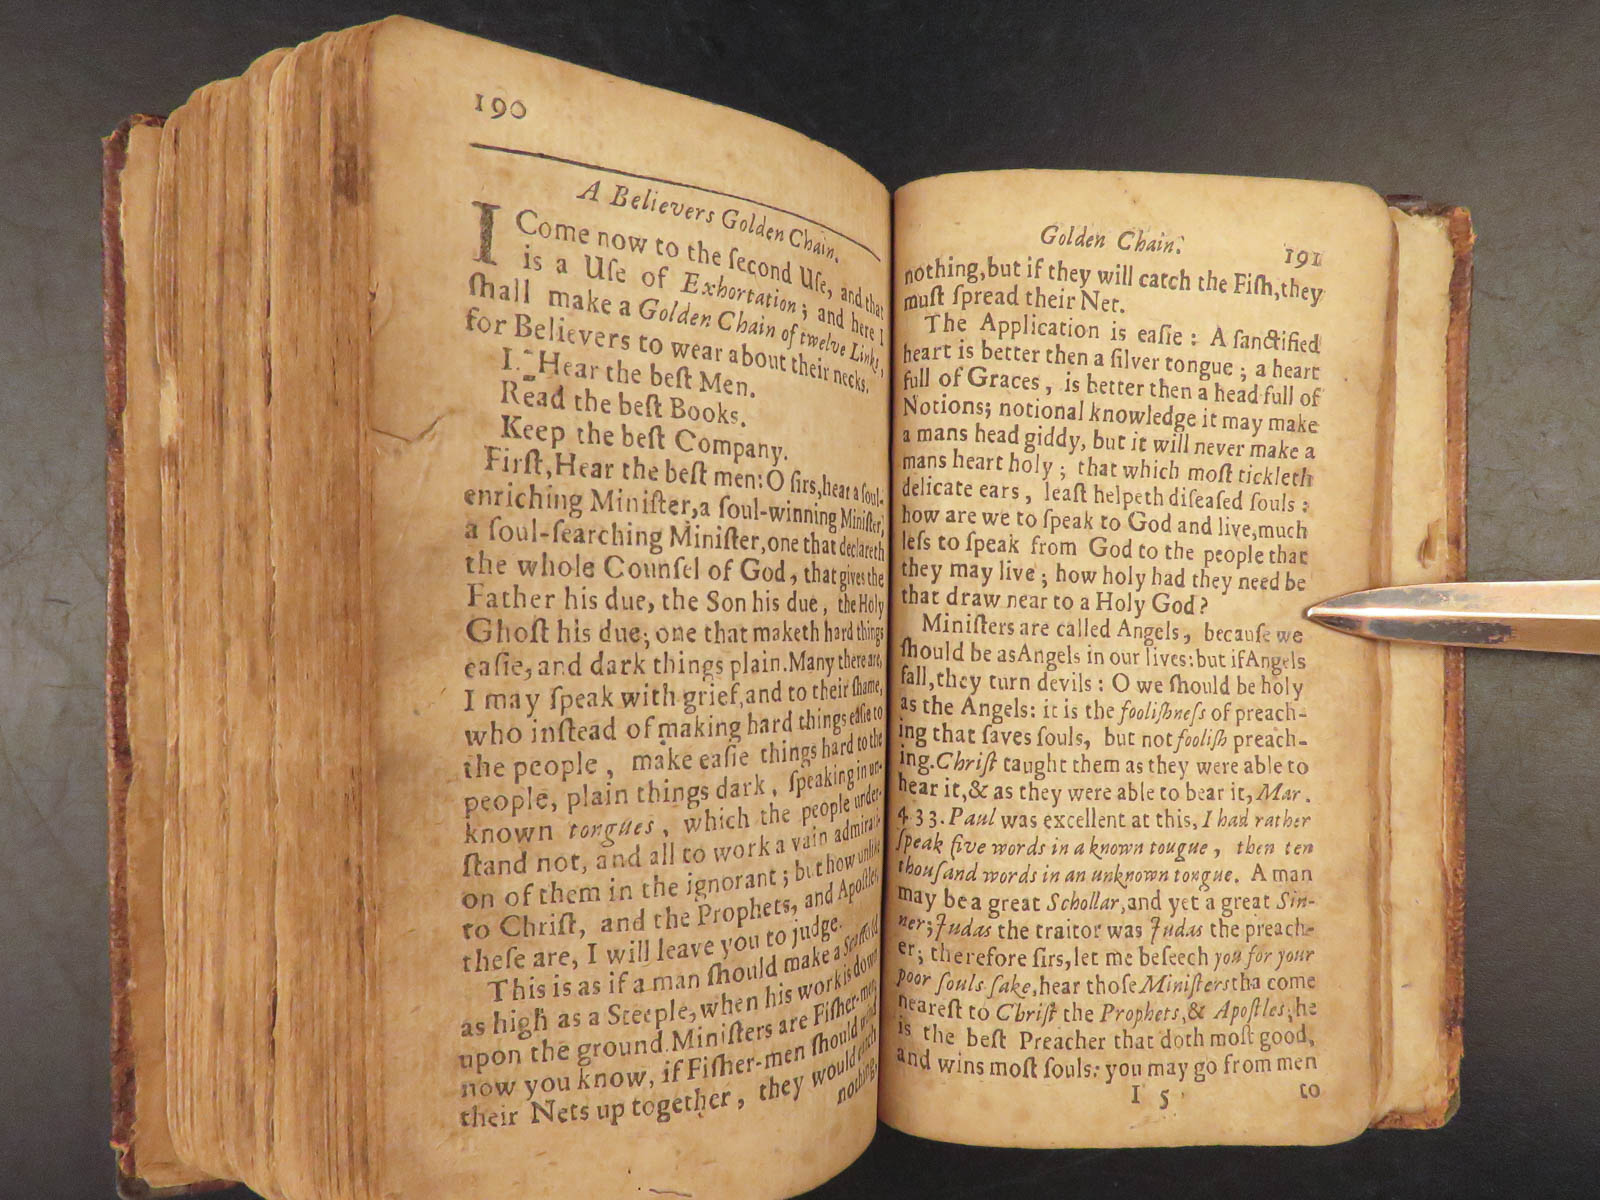 190
A Believers Golden Chain.
I Come now to the ſecond Uſe, and that
is a Uſe of Exhortation; and here I
ſhall make a Golden Chain of twelve Links,
for Believers to wear about their necks.
I. Hear the beſt Men.
Read the beſt Books.
Keep the beſt Company.
Firſt, Hear the beſt men: O ſirs, hear a ſoul-
enriching Miniſter, a ſoul-winning Miniſter,
a ſoul-ſearching Miniſter, one that declareth
the whole Counſel of God, that gives the
Father his due, the Son his due, the Holy
Ghoſt his due; one that maketh hard things
eaſie, and dark things plain. Many there are,
I may ſpeak with grief, and to their ſhame,
who inſtead of making hard things eaſie to
the people, make eaſie things hard to the
people, plain things dark, ſpeaking in un-
known tongues, which the people under-
ſtand not, and all to work a vain admirati-
on of them in the ignorant; but how unlike
to Chriſt, and the Prophets, and Apoſtles,
theſe are, I will leave you to judge.
This is as if a man ſhould make a Scaffold
as high as a Steeple, when his work is down
upon the ground. Miniſters are Fiſher-men,
now you know, if Fiſher-men ſhould wind
their Nets up together, they would catch
nothing,
Golden Chain. 191
nothing, but if they will catch the Fiſh, they
muſt ſpread their Net.
The Application is eaſie: A ſanctified
heart is better then a ſilver tongue; a heart
full of Graces, is better then a head full of
Notions; notional knowledge it may make
a mans head giddy, but it will never make a
mans heart holy; that which moſt tickleth
delicate ears, leaſt helpeth diſeaſed ſouls:
how are we to ſpeak to God and live, much
leſs to ſpeak from God to the people that
they may live; how holy had they need be
that draw near to a Holy God?
Miniſters are called Angels, becauſe we
ſhould be as Angels in our lives: but if Angels
fall, they turn devils: O we ſhould be holy
as the Angels: it is the fooliſhneſs of preach-
ing that ſaves ſouls, but not fooliſh preach-
ing. Chriſt taught them as they were able to
hear it, & as they were able to bear it, Mar.
4. 33. Paul was excellent at this, I had rather
ſpeak five words in a known tougue, then ten
thouſand words in an unknown tongue. A man
may be a great Schollar, and yet a great Sin-
ner; Judas the traitor was Judas the preach-
er; therefore ſirs, let me beſeech you for your
poor ſouls ſake, hear thoſe Miniſters tha come
neareſt to Chriſt the Prophets, & Apoſtles, he
is the beſt Preacher that doth moſt good,
and wins moſt ſouls: you may go from men
I 5 to